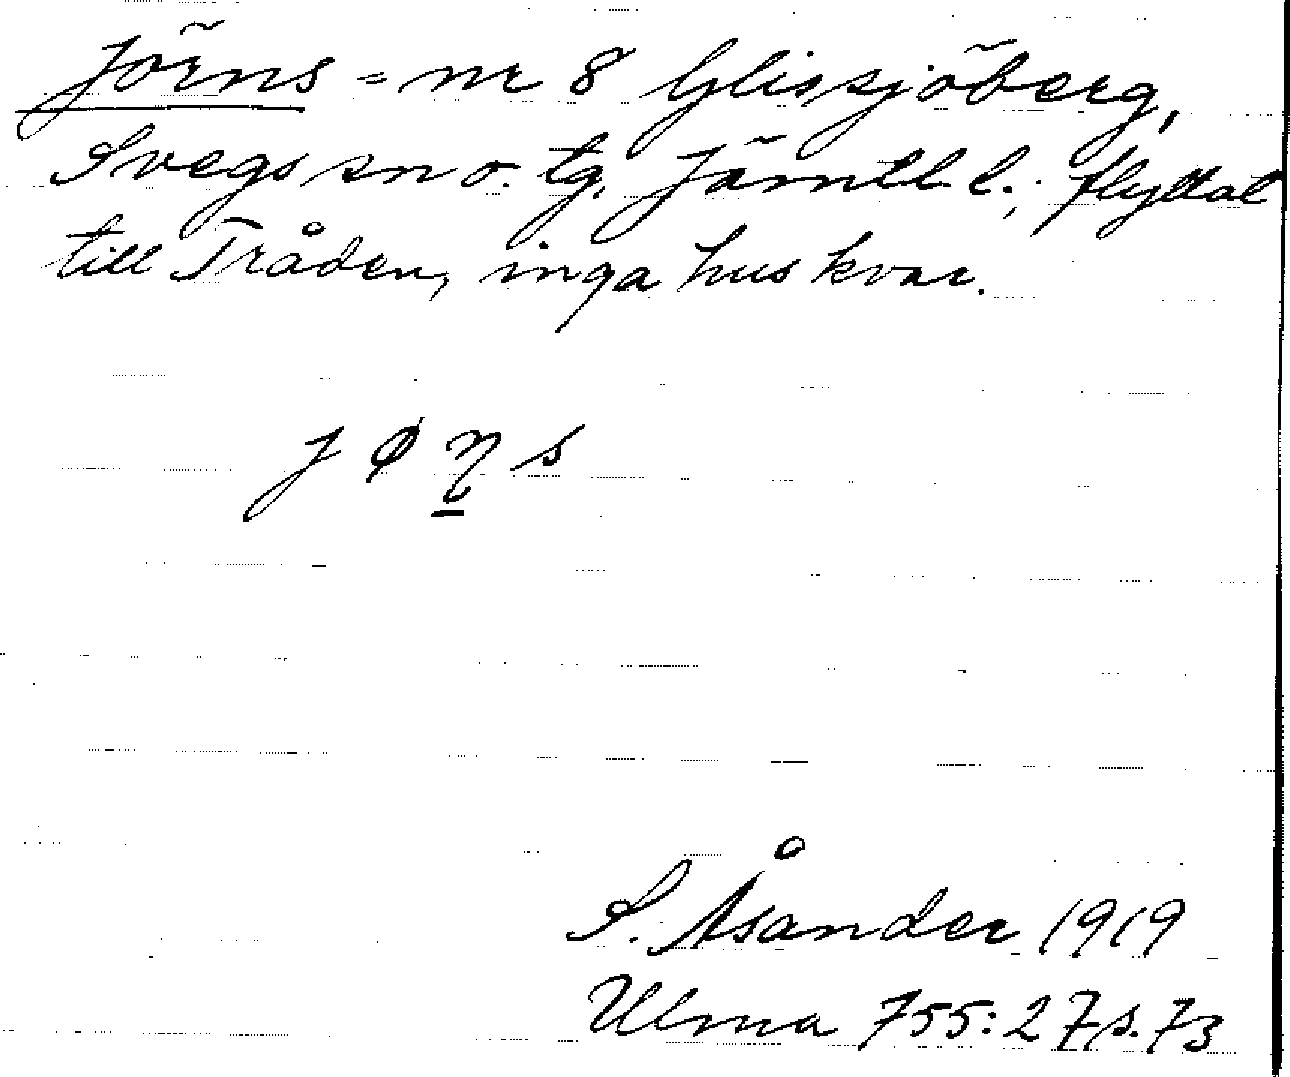 Jöns = nr 8 Glissjöberg,
Svegs sn o. tg. Jämtl. l.; flyttat
till Tråden, inga hus kvar.
j ø n̠ s
S. Åsander 1919
Ulma 755:27 s. 73